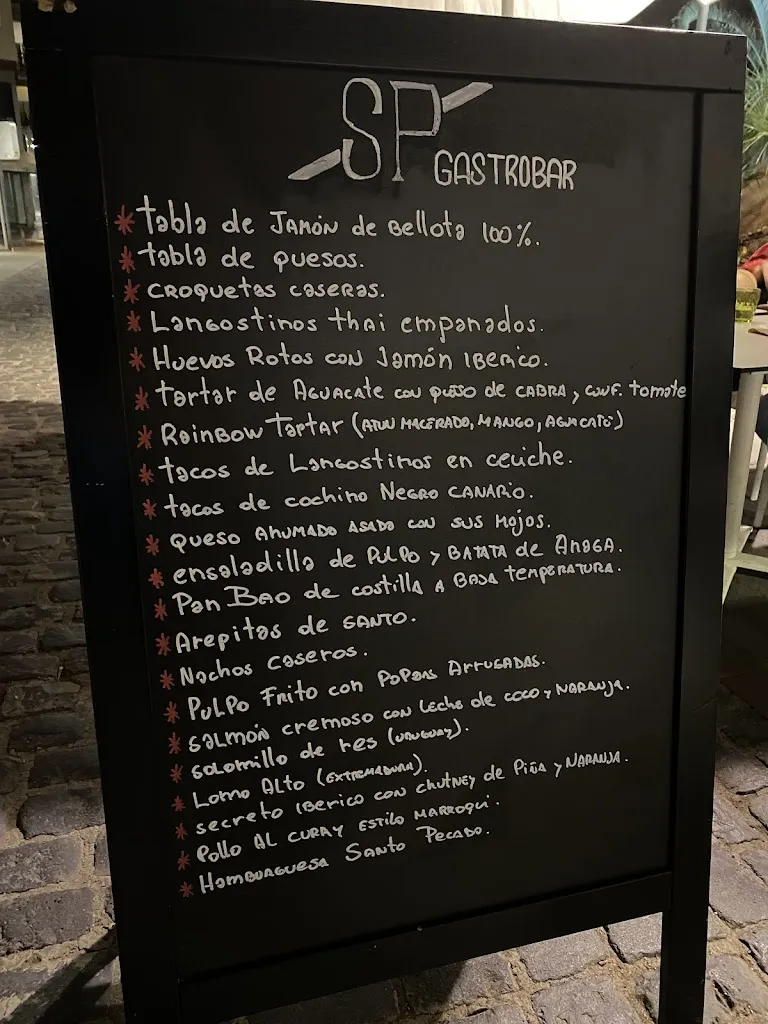 SP
GASTROBAR
* tabla de Jamón de Bellota 100%.
* tabla de quesos.
* CROQUETAS caseras.
* Langostinos thai empanados.
* Huevos Rotos con Jamón IBERICO.
* tartar de AGUACATE con queso de CABRA, CONF. tomate
* Rainbow Tartar (ATUN MACERADO, MANGO, AGUACATE)
* tacos de Langostinos en ceviche.
* tacos de cochino NEGRO CANARIO.
* QUESO AHUMADO ASADO CON SUS MOJOS.
* ensaladilla de PULPO y BATATA de ANAGA.
* Pan BAO de costilla A BAJA temperatura.
* Arepitas de SANTO.
* Nachos caseros.
* PULPO Frito con PAPAS ARRUGADAS.
* SALMÓN cremoso con Leche de coco y NARANJA.
* solomillo de res (URUGUAY).
* Lomo ALTO (EXTREMADURA).
* secreto IBERICO con chutney de Piña y NARANJA.
* Pollo AL CURRY ESTILO MARROQUI.
* HAMBURGUESA Santo Pecado.